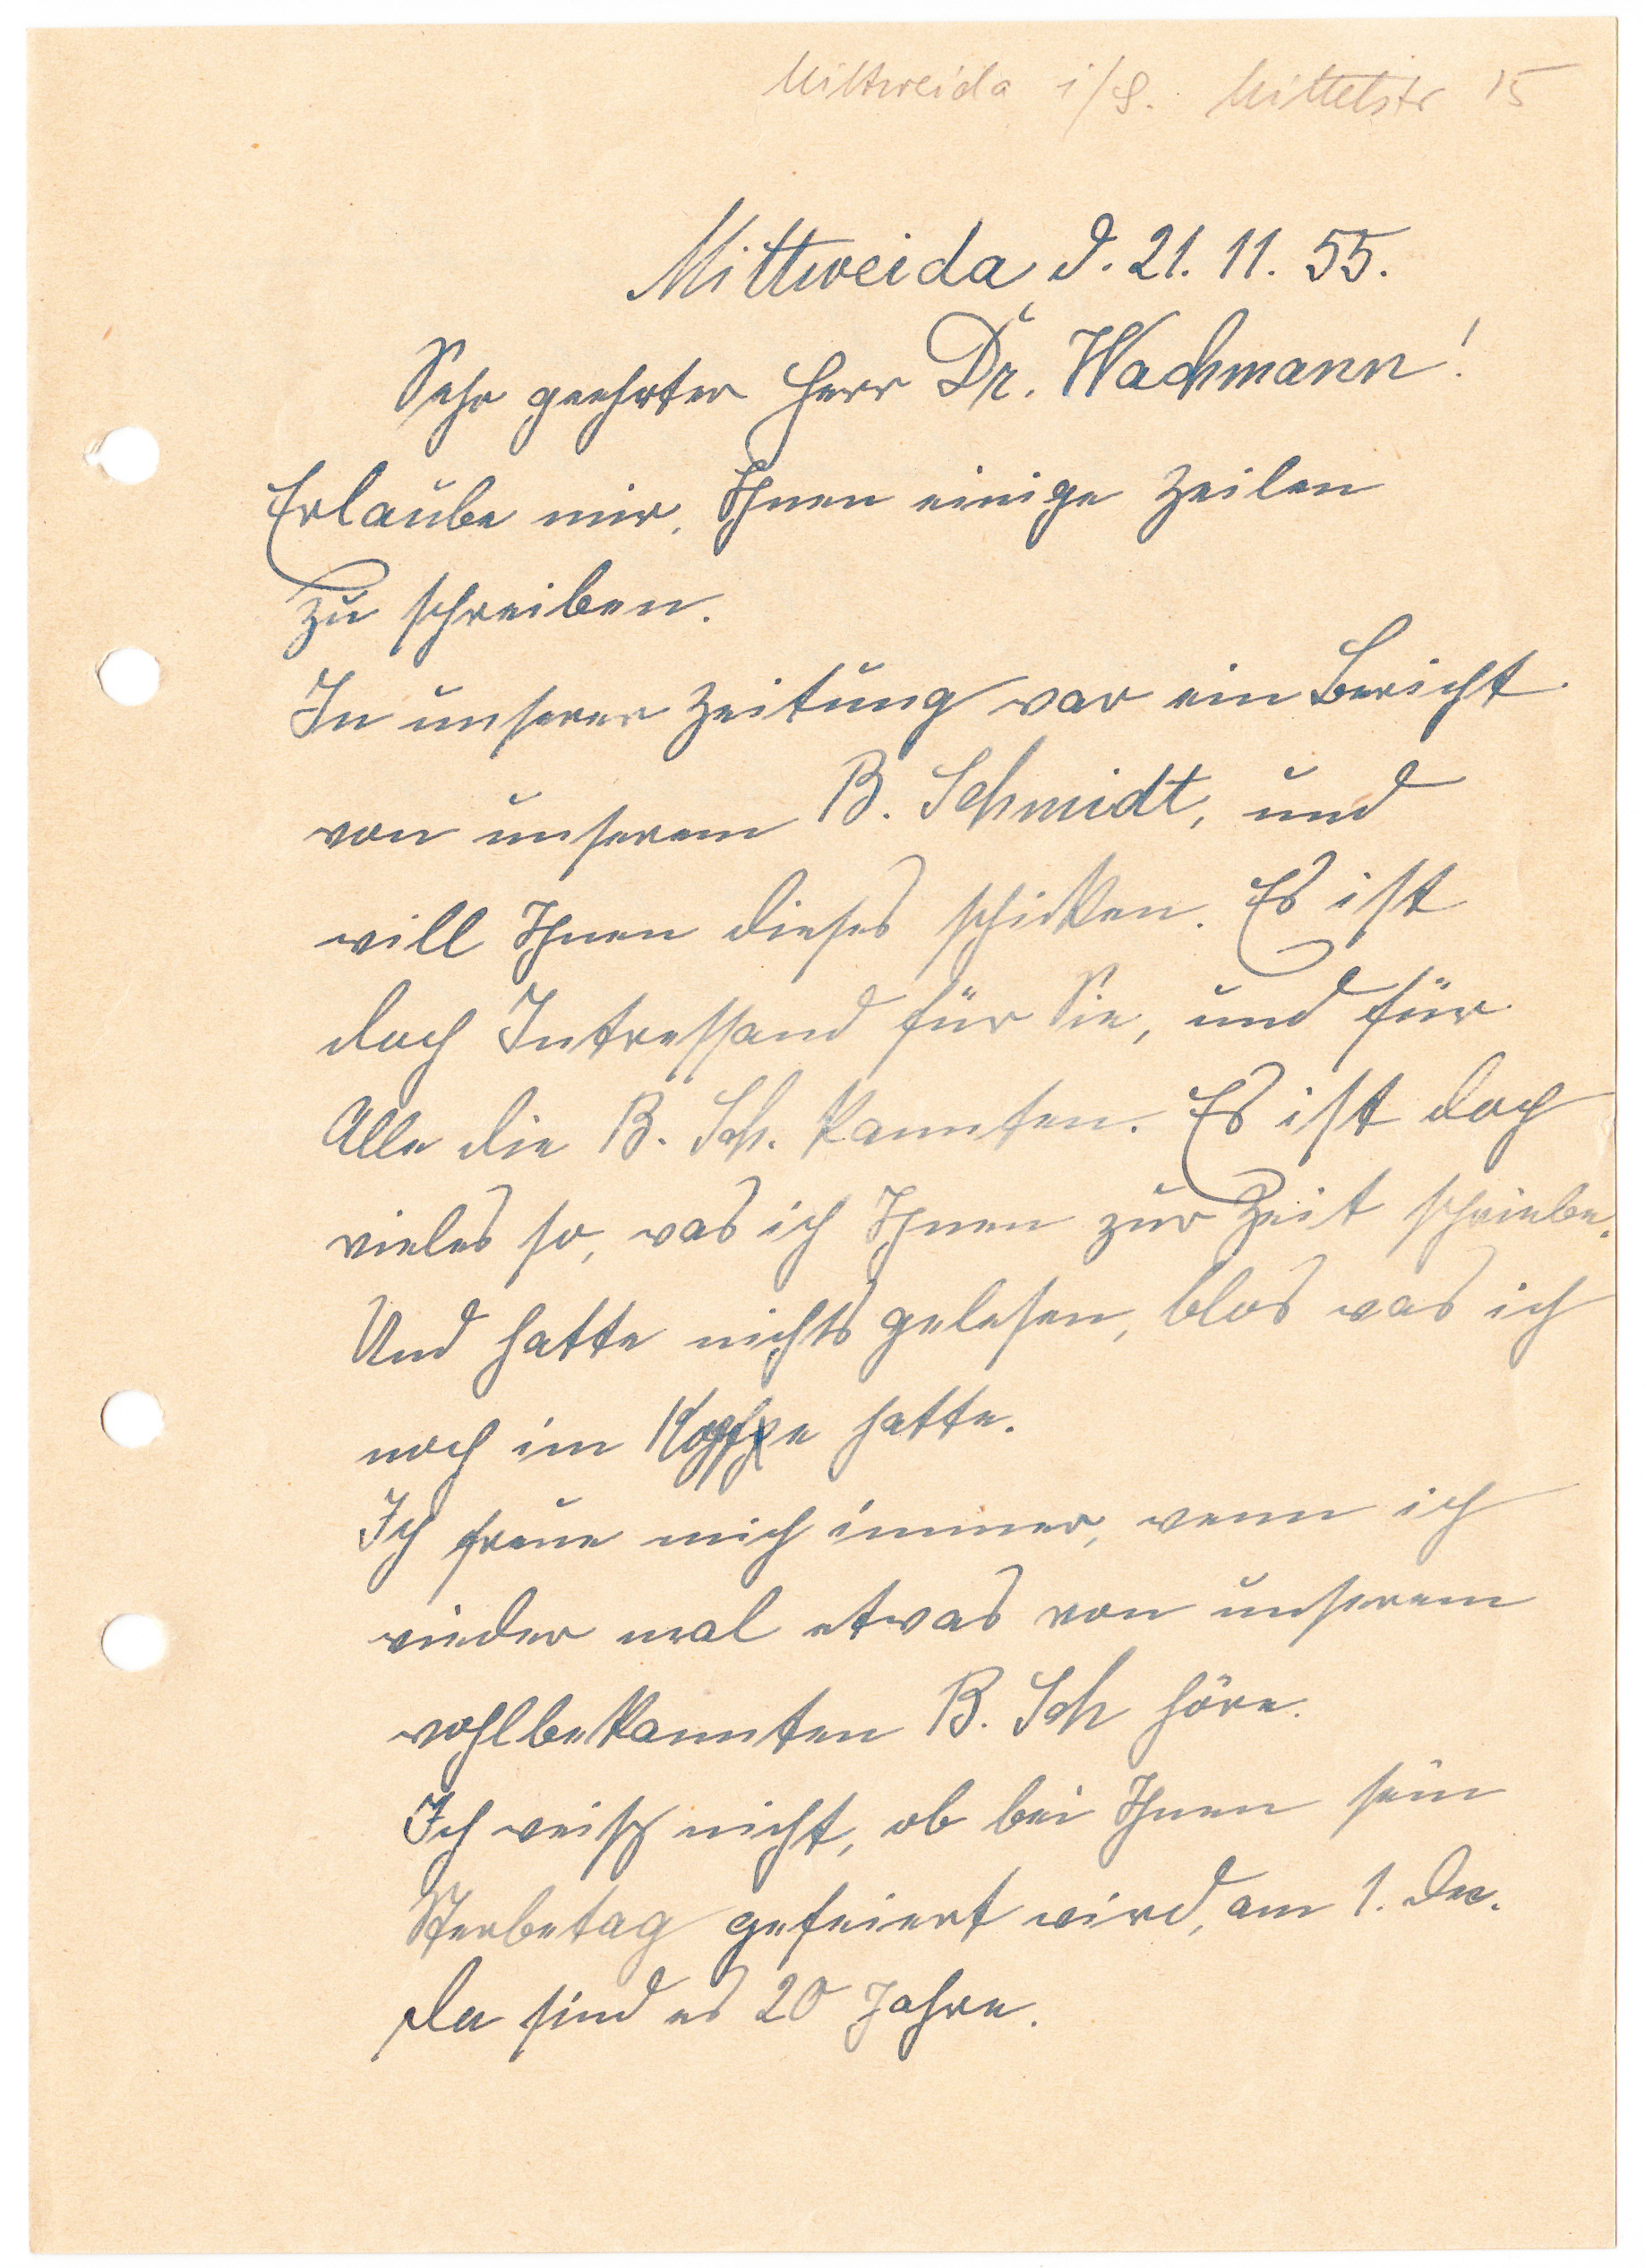 Mittweida i/S. Mittelstr 15
Mittweida, d. 21. 11. 55.
Sehr geehrter Herr Dr. Wachmann!
Erlaube mir, Ihnen einige Zeilen
zu schreiben.
In unserer Zeitung war ein Bericht
von unserem B. Schmidt, und
will Ihnen dieses schicken. Es ist
doch Intressand für Sie, und für
Alle die B. Sch. kannten. Es ist doch
vieles so, was ich Ihnen zur Zeit schriebe.
Und hatte nichts gelesen, blos was ich
noch im Kopfe hatte.
Ich freue mich immer, wenn ich
wieder mal etwas von unserem
wohlbekannten B. Sch höre.
Ich weiß nicht, ob bei Ihnen sein
Sterbetag gefeiert wird, am 1. Dez.
da sind es 20 Jahre.